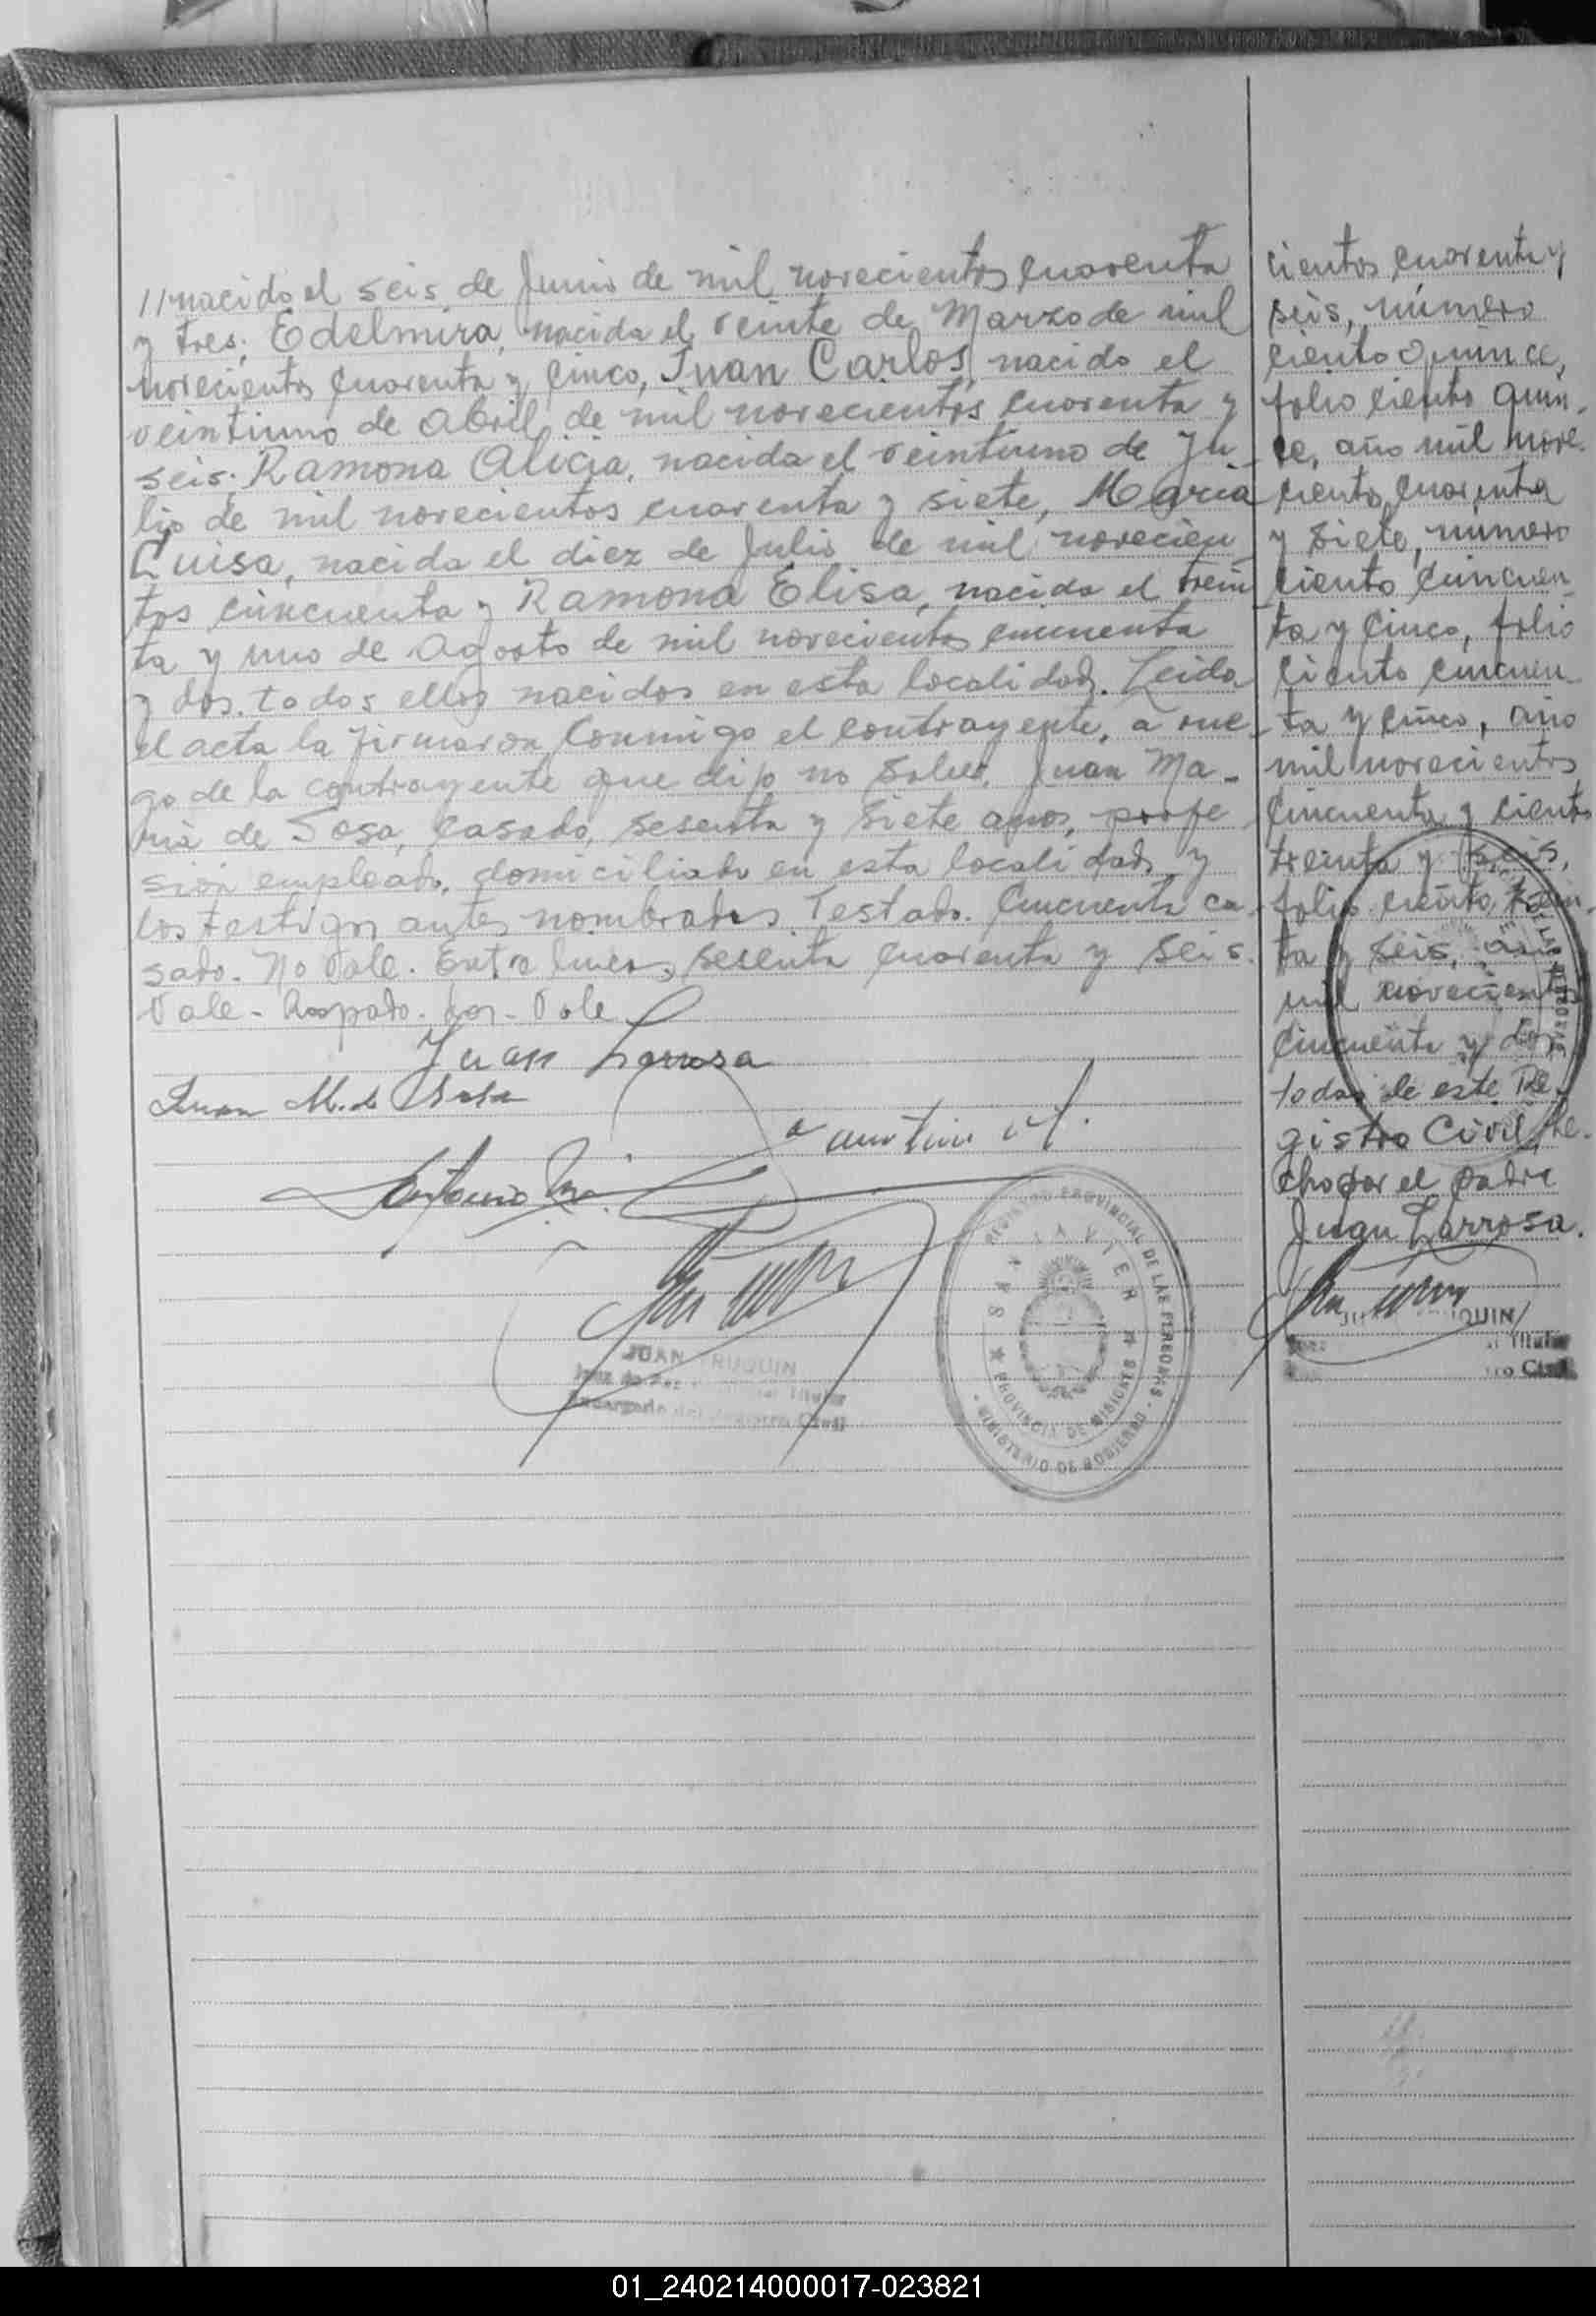 //nacido el seis de Junio de mil novecientos cuarenta
y tres; Edelmira, nacida el veinte de Marzo de mil
novecientos cuarenta y cinco, Juan Carlos, nacido el
veintiuno de abril de mil novecientos cuarenta y
seis. Ramona Alicia, nacida el veintiuno de Ju-
lio de mil novecientos cuarenta y siete, Maria
Luisa, nacida el diez de Julio de mil novecien
tos cincuenta y Ramona Elisa, nacida el trein
ta y uno de Agosto de mil novecientos cincuenta
y dos. todos ellos nacidos en esta localidad. Leida
el acta la firmaron conmigo el contrayente, a rue-
go de la contrayente que dijo no saber, Juan Ma-
ria de Sosa, casado, sesenta y siete años, profe
sion empleado, domiciliado en esta localidad, y
los testigos antes nombrados. Testado. Cincuenta ca-
sado. No Vale. Entre lineas, sesenta cuarenta y seis.
Vale - Raspado. por - Vale
Juan Larrosa
Juan M. de Sosa
Antonio
REGISTRO PROVINCIAL DE LAS PERSONAS
SAN JAVIER
PROVINCIA DE MISIONES
MINISTERIO DE GOBIERNO
JUAN TRUQUIN
Juez de Paz Titular
Encargado del Registro Civil
cientos cuarenta y
seis, número
ciento quince,
folio ciento quin-
ce, año mil nove-
ciento cuarenta
y siete, número
ciento cincuen
ta y cinco, folio
ciento cincuen-
ta y cinco, año
mil novecientos
cincuenta y ciento
treinta y seis,
folio ciento trein-
ta y seis, año
mil novecientos
cincuenta y dos
todas de este Re-
gistro Civil, he-
cho por el padre
Juan Larrosa.
QUIN
Titular
Civil
01_240214000017-023821